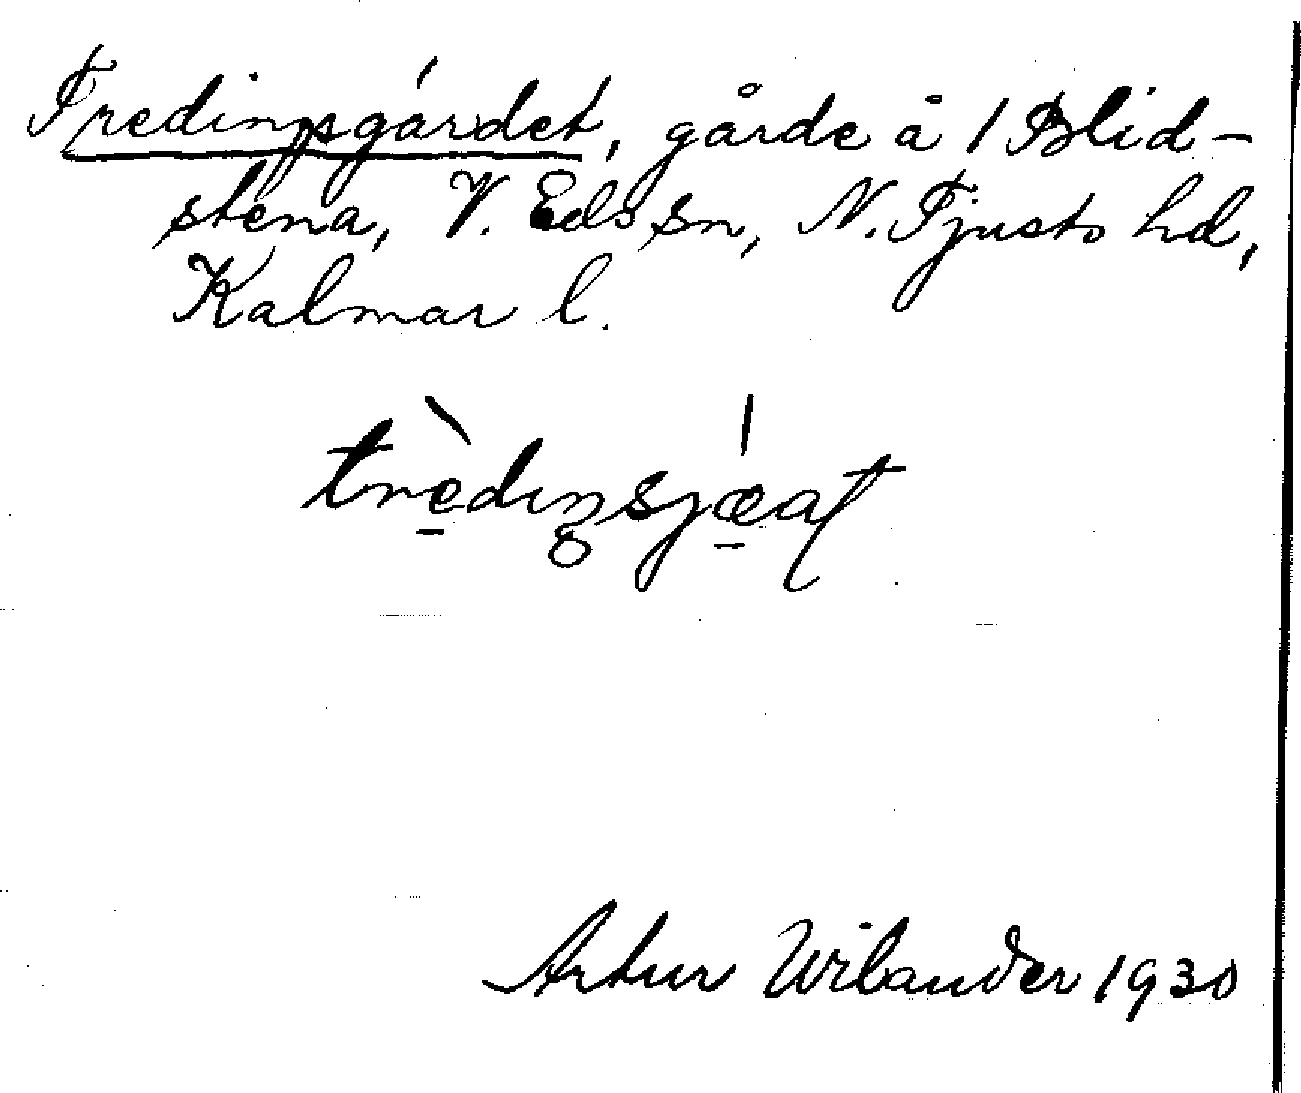 Tredingsgärdet, gärde å 1 Blid-
stena, V. Eds sn, N. Tjusts hd,
Kalmar l.
Artur Wilander 1930